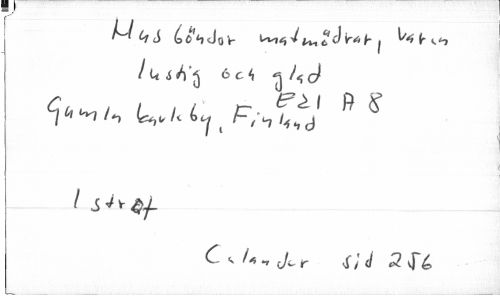 Hus bönder matmödrar, varen
lustig och glad
E21 A 8
Gamla karleby, Finland
1 strof
Calander sid 256